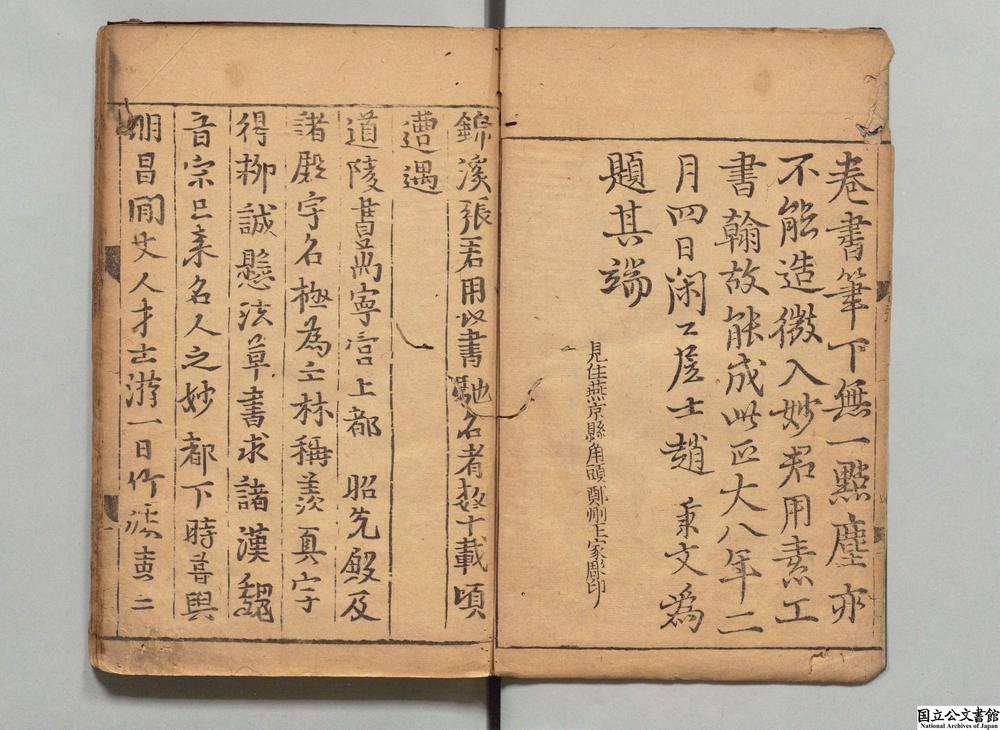 卷書筆下無一點塵亦
不能造微入妙君用素工
書翰故能成此正大八年二
月四日閑〻居士趙秉文為
題其端
見住燕京縣角頭鄭州王家彫印
錦溪張君用以書馳名者數十載頃
遭遇
道陵書萬寧宮上都 昭先殿及
諸殿字名極為士林稱羨真字
得柳誠懸法草書求諸漢魏
晉宗已來名人之妙都下時昔與
明昌間文人才士游一日作
国立公文書館
National Archives of Japan